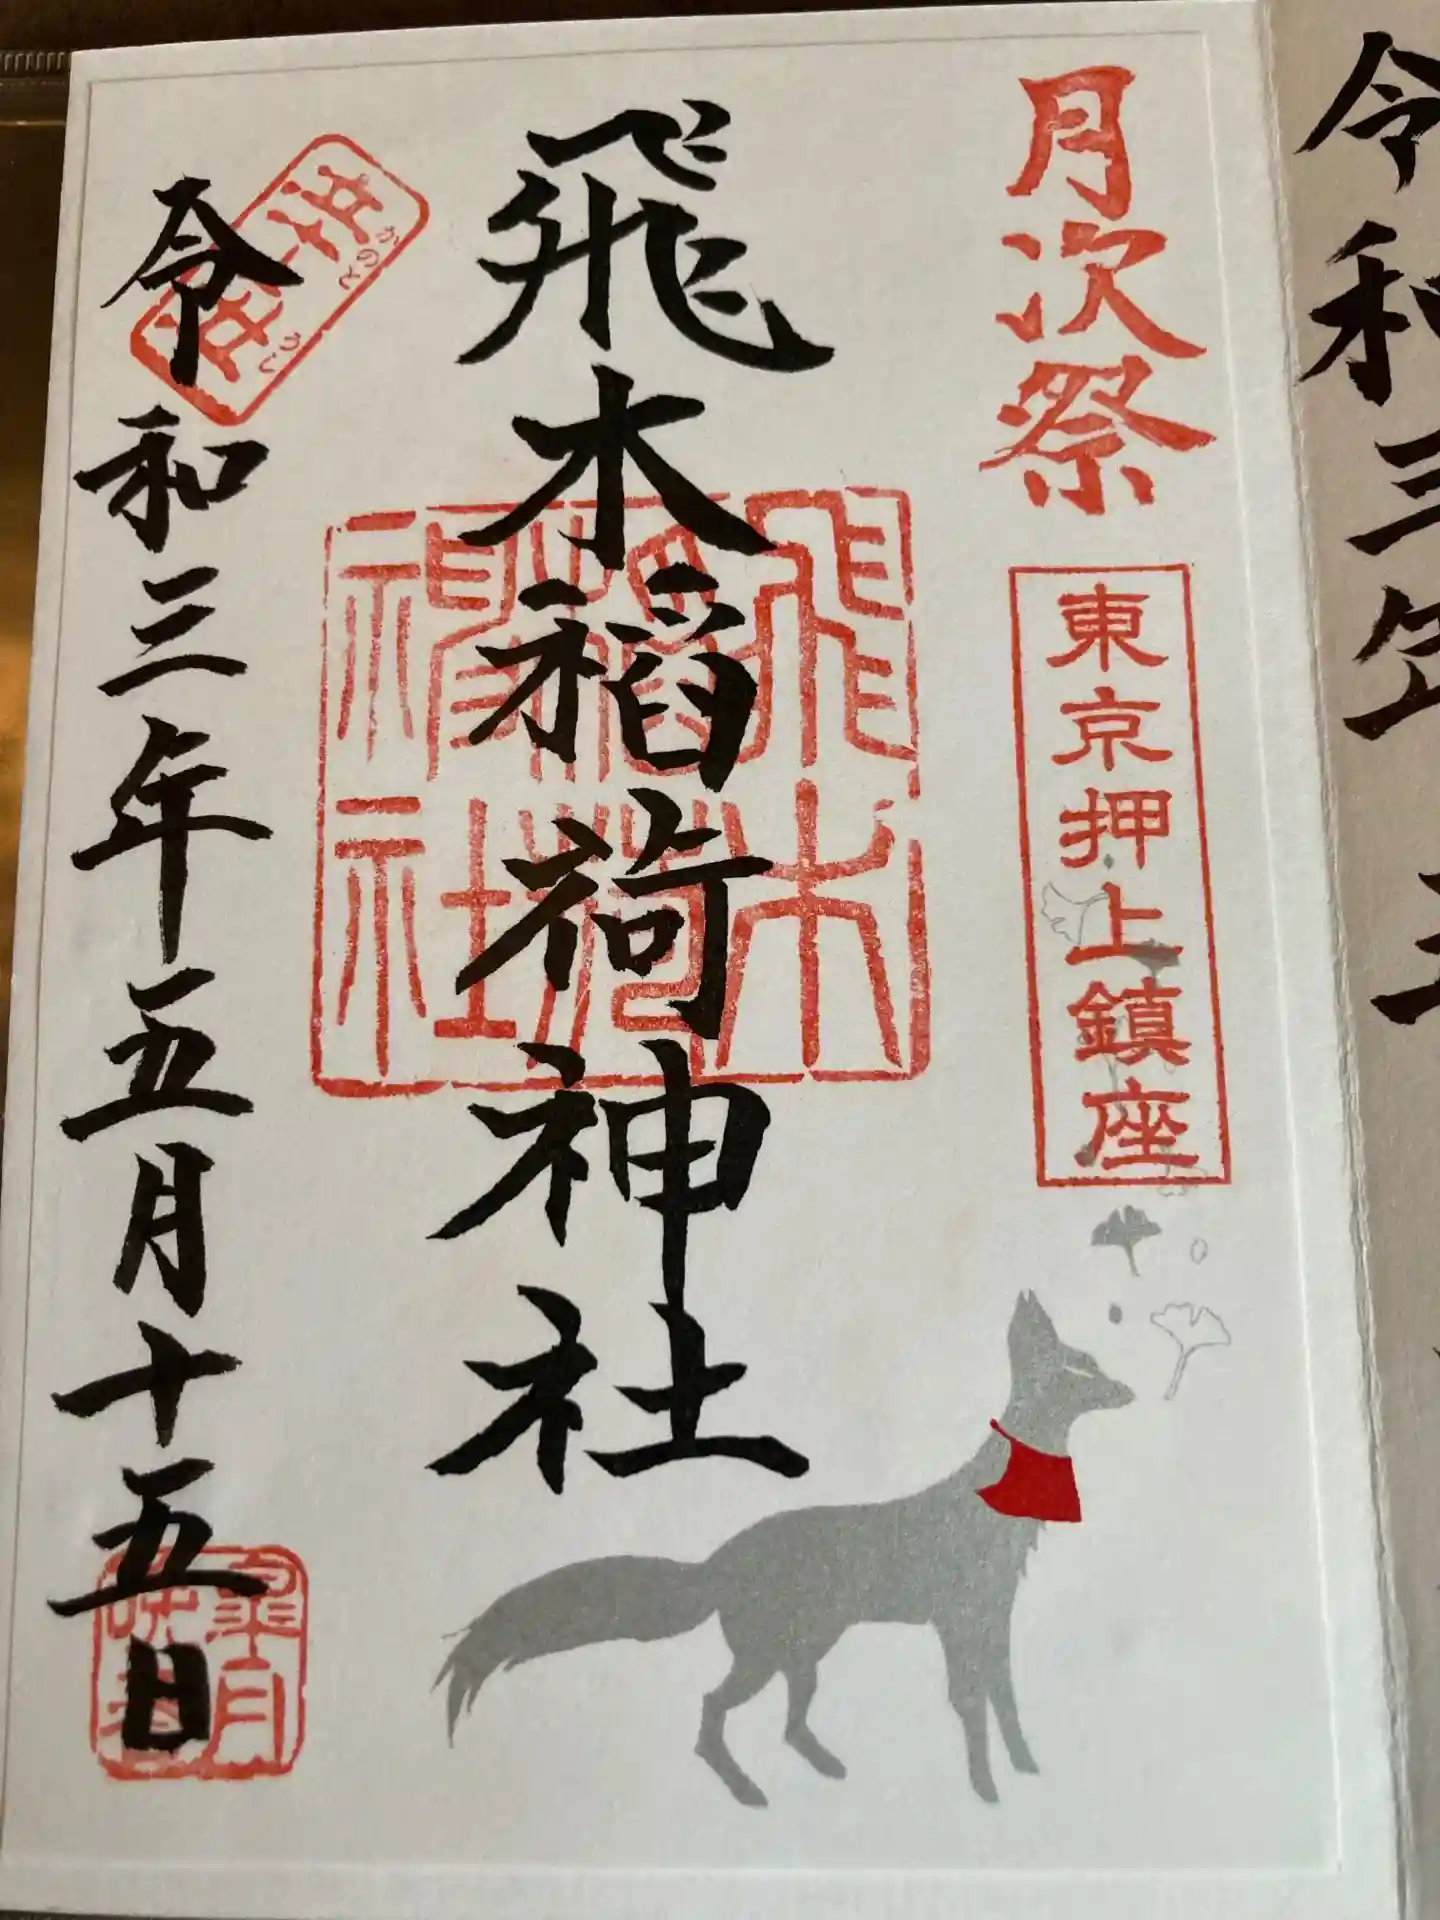 令和三年 五
月次祭
東京押上鎮座
飛木稲荷神社
飛木
稲荷
神社
辛
かのと
丑
うし
令和三年五月十五日
皐月